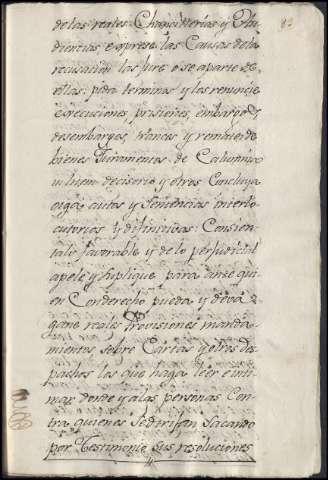 de las reales Chancillerias y Au
diencias, exprese las Causas dela
recusacion las Jure o se aparte de
ellas: pida terminos y los renuncie
execuciones, prisiones, embargos
desembargos, trancas y remate de
bienes Juramentos de Calumnia
decisorio y otros Concluya
oiga autos y Sentencias interlo
cutorias y difinitivas: Consien
ta lo favorable y de lo perjudicial
apele y Suplique para ante qui
en Conderecho pueda y deva
gane reales Provisiones manda
mientos, sobre Cartas y otros des
pachos los que haga leer e inti
mar donde y alas personas Con
tra quienes Sedirijan Sacando
por Testimonio Sus resoluciones